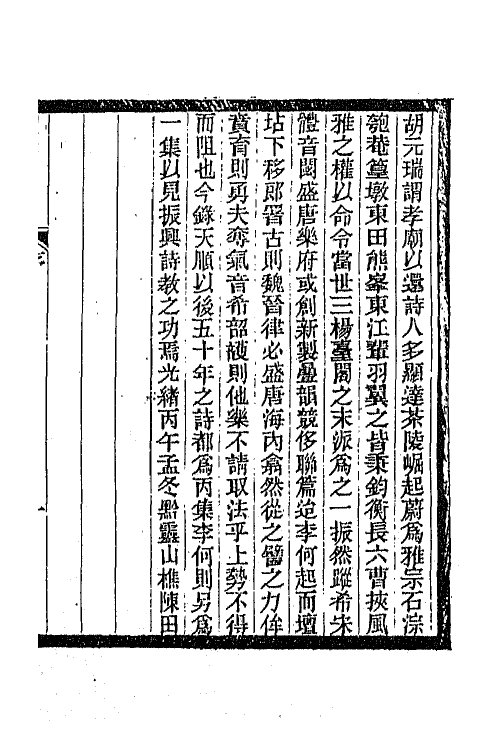 胡元瑞謂孝廟以還詩人多顯達茶陵崛起蔚爲雅宗石淙
匏菴篁墩東田熊峯東江輩羽翼之皆秉鈞衡長六曹挾風
雅之權以命令當世三楊臺閣之末派爲之一振然蹤希宋
體音闋盛唐樂府或創新製疊韻競侈聯篇迨李何起而壇
坫下移郎署古則魏晉律必盛唐海內翕然從之譬之力侔
賁育則勇夫奪氣音希韶頀則他樂不請取法乎上勢不得
而阻也今錄天順以後五十年之詩都爲丙集李何則另爲
一集以見振興詩教之功焉光緒丙午孟冬黔靈山樵陳田
序